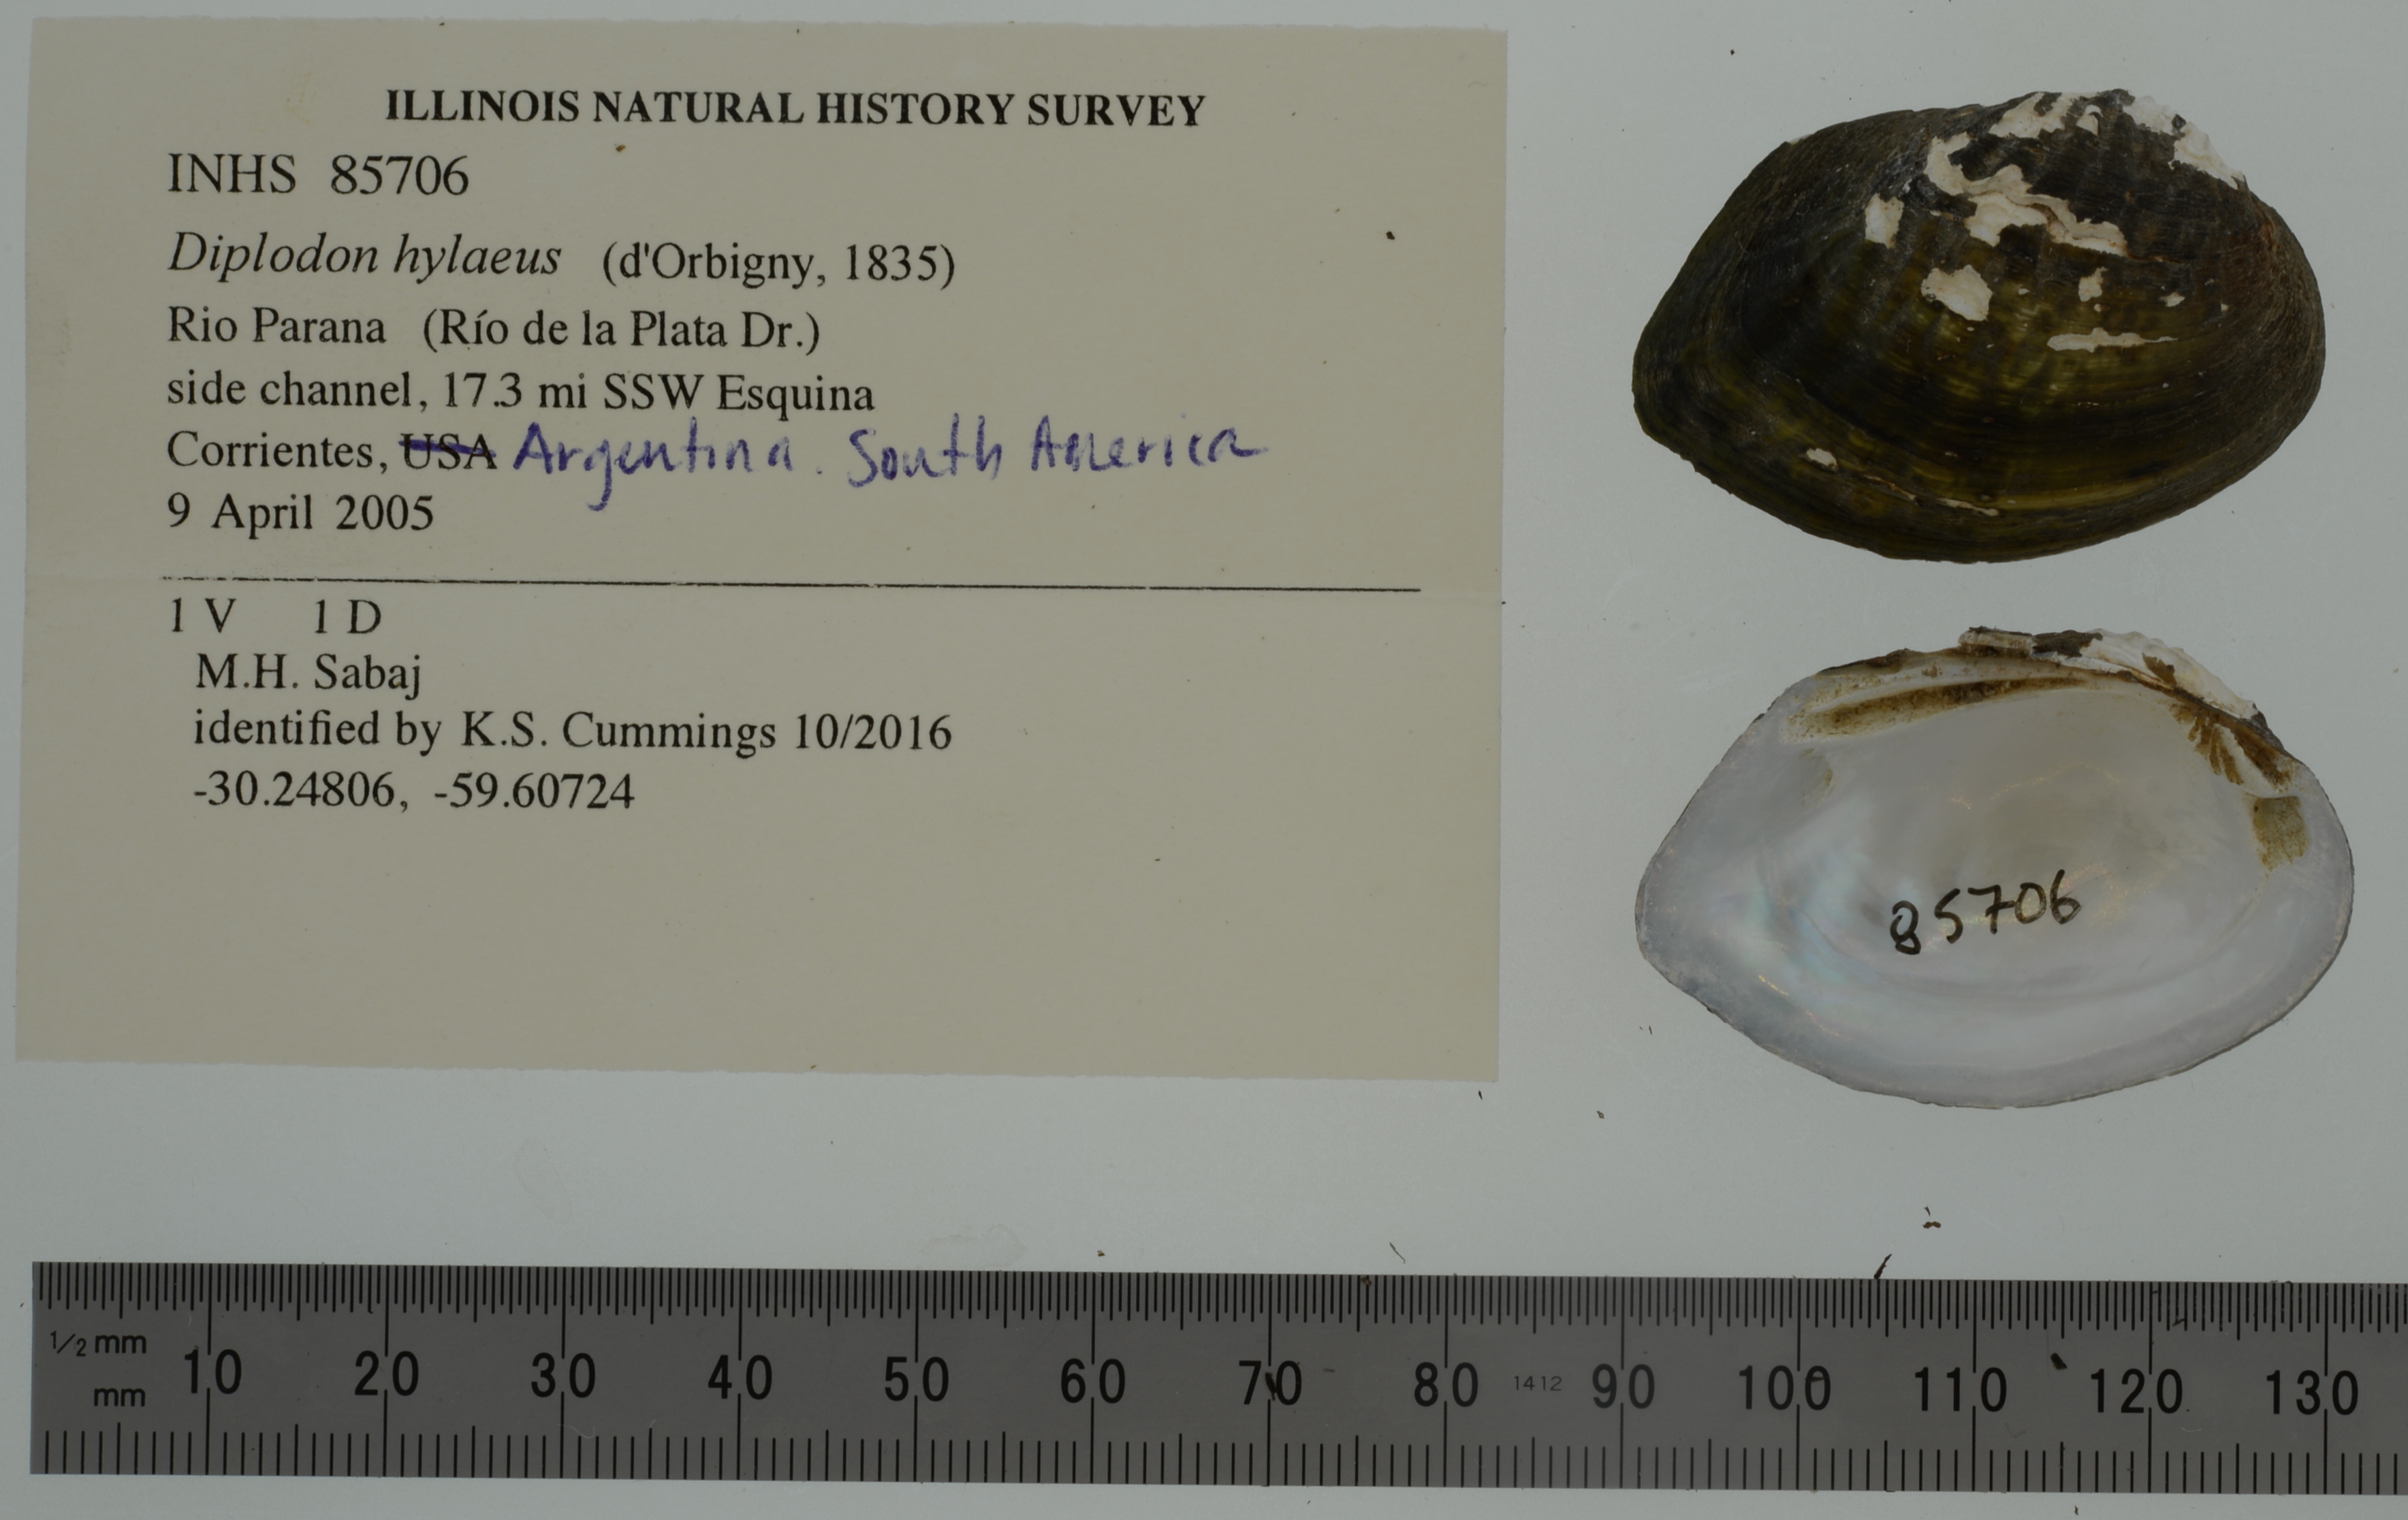 ILLINOIS NATURAL HISTORY SURVEY
INHS 85706
Diplodon hylaeus (d'Orbigny, 1835)
Rio Parana (Río de la Plata Dr.)
side channel, 17.3 mi SSW Esquina
Corrientes, USA Argentina. South America
9 April 2005
1 V 1 D
M.H. Sabaj
identified by K.S. Cummings 10/2016
-30.24806, -59.60724
85706
1/2 mm
mm 10 20 30 40 50 60 70 80 1412 90 100 110 120 130